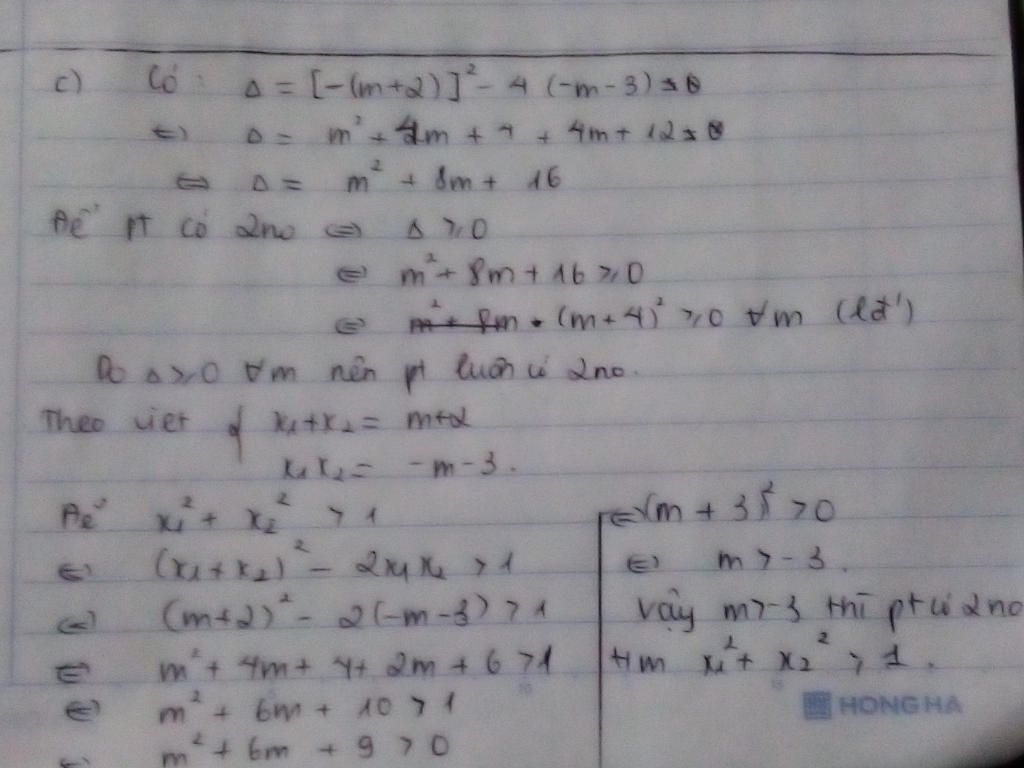 c) Có: Δ = [-(m+2)]² - 4 (-m-3)
⇔ Δ = m² + 4m + 4 + 4m + 12
⇔ Δ = m² + 8m + 16
Để pt có 2no ⇔ Δ ≥ 0
⇔ m² + 8m + 16 ≥ 0
⇔ (m+4)² ≥ 0 ∀m (lđ')
Do Δ ≥ 0 ∀m nên pt luôn có 2no.
Theo viet { x₁+x₂ = m+2
x₁x₂ = -m-3.
Để x₁² + x₂² > 1
⇔ (x₁+x₂)² - 2x₁x₂ > 1
⇔ (m+2)² - 2(-m-3) > 1
⇔ m² + 4m + 4 + 2m + 6 > 1
⇔ m² + 6m + 10 > 1
⇔ m² + 6m + 9 > 0
⇔ (m+3)² > 0
⇔ m > -3.
Vậy m > -3 thì pt có 2no
t/m x₁² + x₂² > 1.
HONG HA